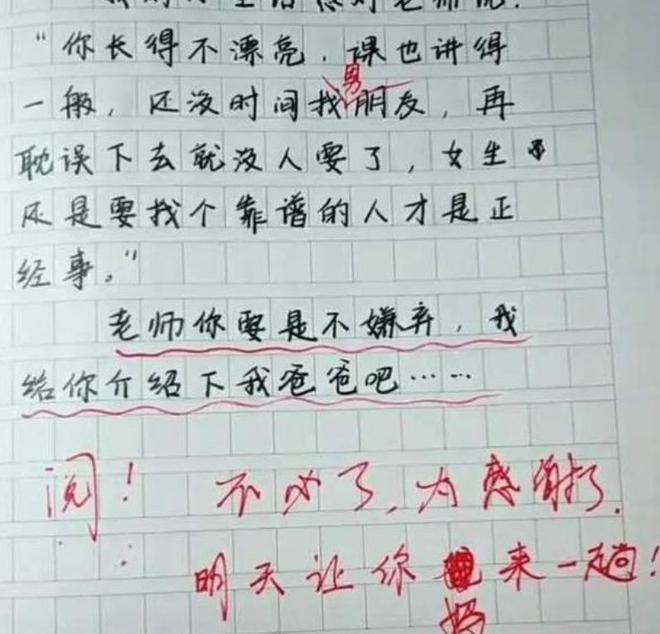 "你长得不漂亮，课也讲得
男
一般，还没时间找朋友，再
耽误下去就没人要了，女生
还是要找个靠谱的人才是正
经事。"
老师你要是不嫌弃，我
给你介绍下我爸爸吧……
阅！ 不必了，太感谢了.
明天让你来一趟！
妈